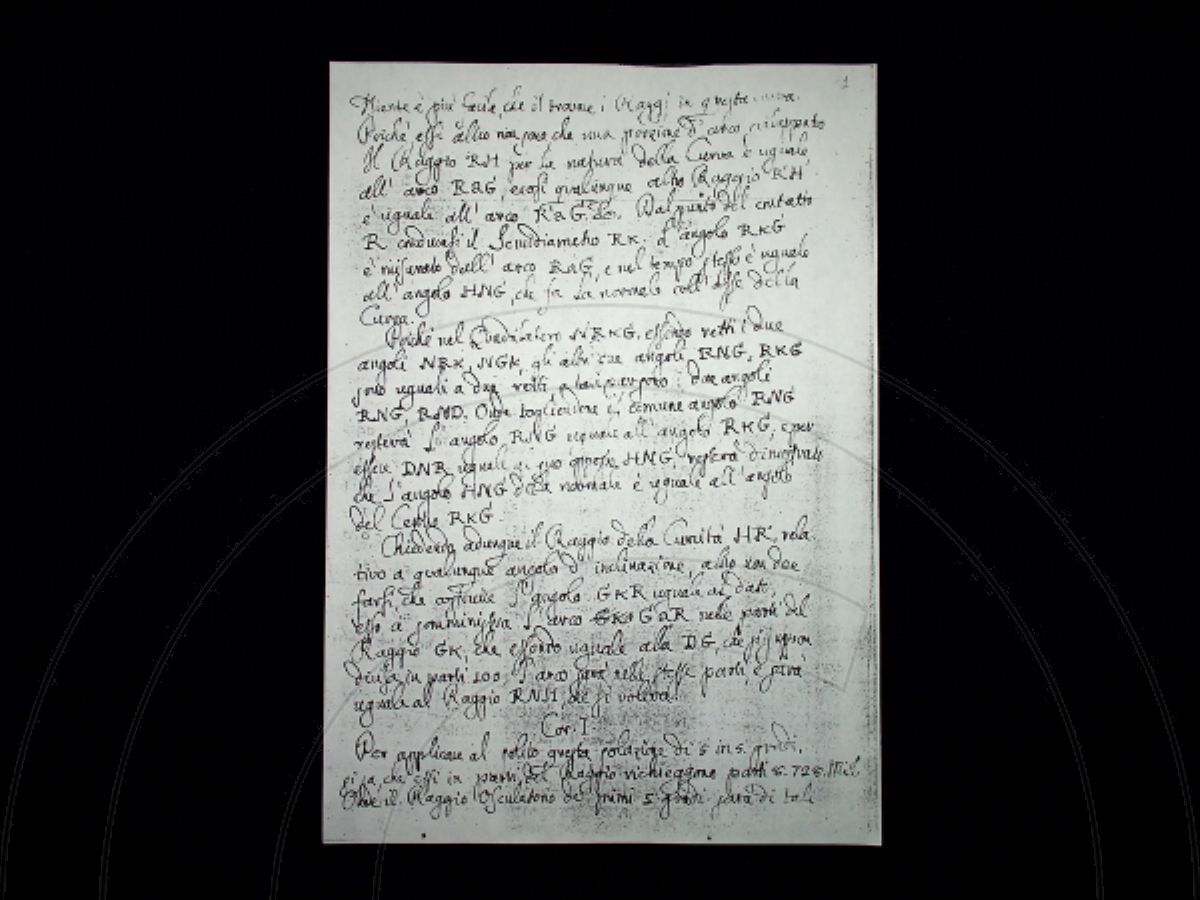 1
Niente è più facile, che il trovare i Raggi in questa
Poiché essi altro non sono, che una porzione d'arco,
Il Raggio RH per la natura della Curva è uguale
all' arco RaG, così qualunque altro Raggio RH
è uguale all' arco RaG. &c. Dal punto del contatto
R conducasi il Semidiametro RK. L'angolo RKG
è misurato dall' arco RaG, e nel tempo stesso è uguale
all' angolo HNG, che fa la normale coll' asse della
Curva.
Poiché nel Quadrilatero NRKG, essendo retti i due
angoli NRK, NGK, gli altri due angoli RNG, RKG
sono uguali a due retti, e due angoli
RNG, RND. Onde togliendone il comune angolo RNG
resterà l'angolo RNG uguale all' angolo RKG, e per
essere DNR uguale al suo opposto HNG, resterà dimostrato
che l'angolo HNG della normale è uguale all' angolo
del Centro RKG.
Chiedendo adunque il Raggio della Curvità HR, rela
tivo a qualunque angolo d' inclinazione, altro non dee
farsi, che costruire l'angolo GKR uguale al dato,
esso ci somministra l' arco GaR nelle parti del
Raggio GK, che essendo uguale alla DG, che si suppon
divisa in parti 100. l'arco sarà nelle stesse parti, e sarà
uguale al Raggio RNH, che si voleva.
Cor. I.
Per applicare al solito questa soluzione di 5 in 5 gradi,
si sa, che essi in parti del Raggio richieggono parti 8.728. Mil
Onde il Raggio Osculatorio de' primi 5 gradi sarà di tali